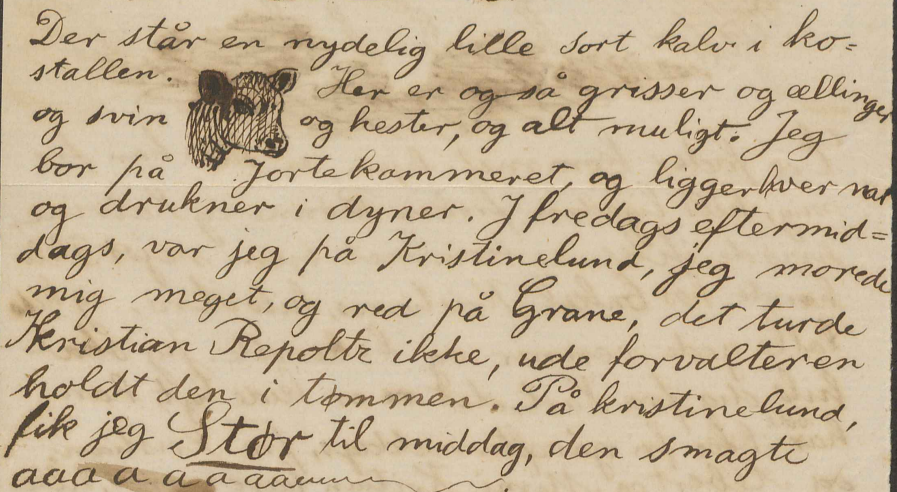 Der står en nydelig lille sort kalv i ko=
stallen. Her er og så grisser og ællinger
og svin og hester, og alt muligt. Jeg
bor på Jortekammeret, og ligger hver nat
og drukner i dyner. I fredags eftermid=
dags, var jeg på Kristinelund, jeg morede
mig meget, og red på Grane, det turde
Kristian Repoltz ikke, ude forvalteren
holdt den i tømmen. På kristinelund,
fik jeg Stør til middag, den smagte
aaaaaaaaa